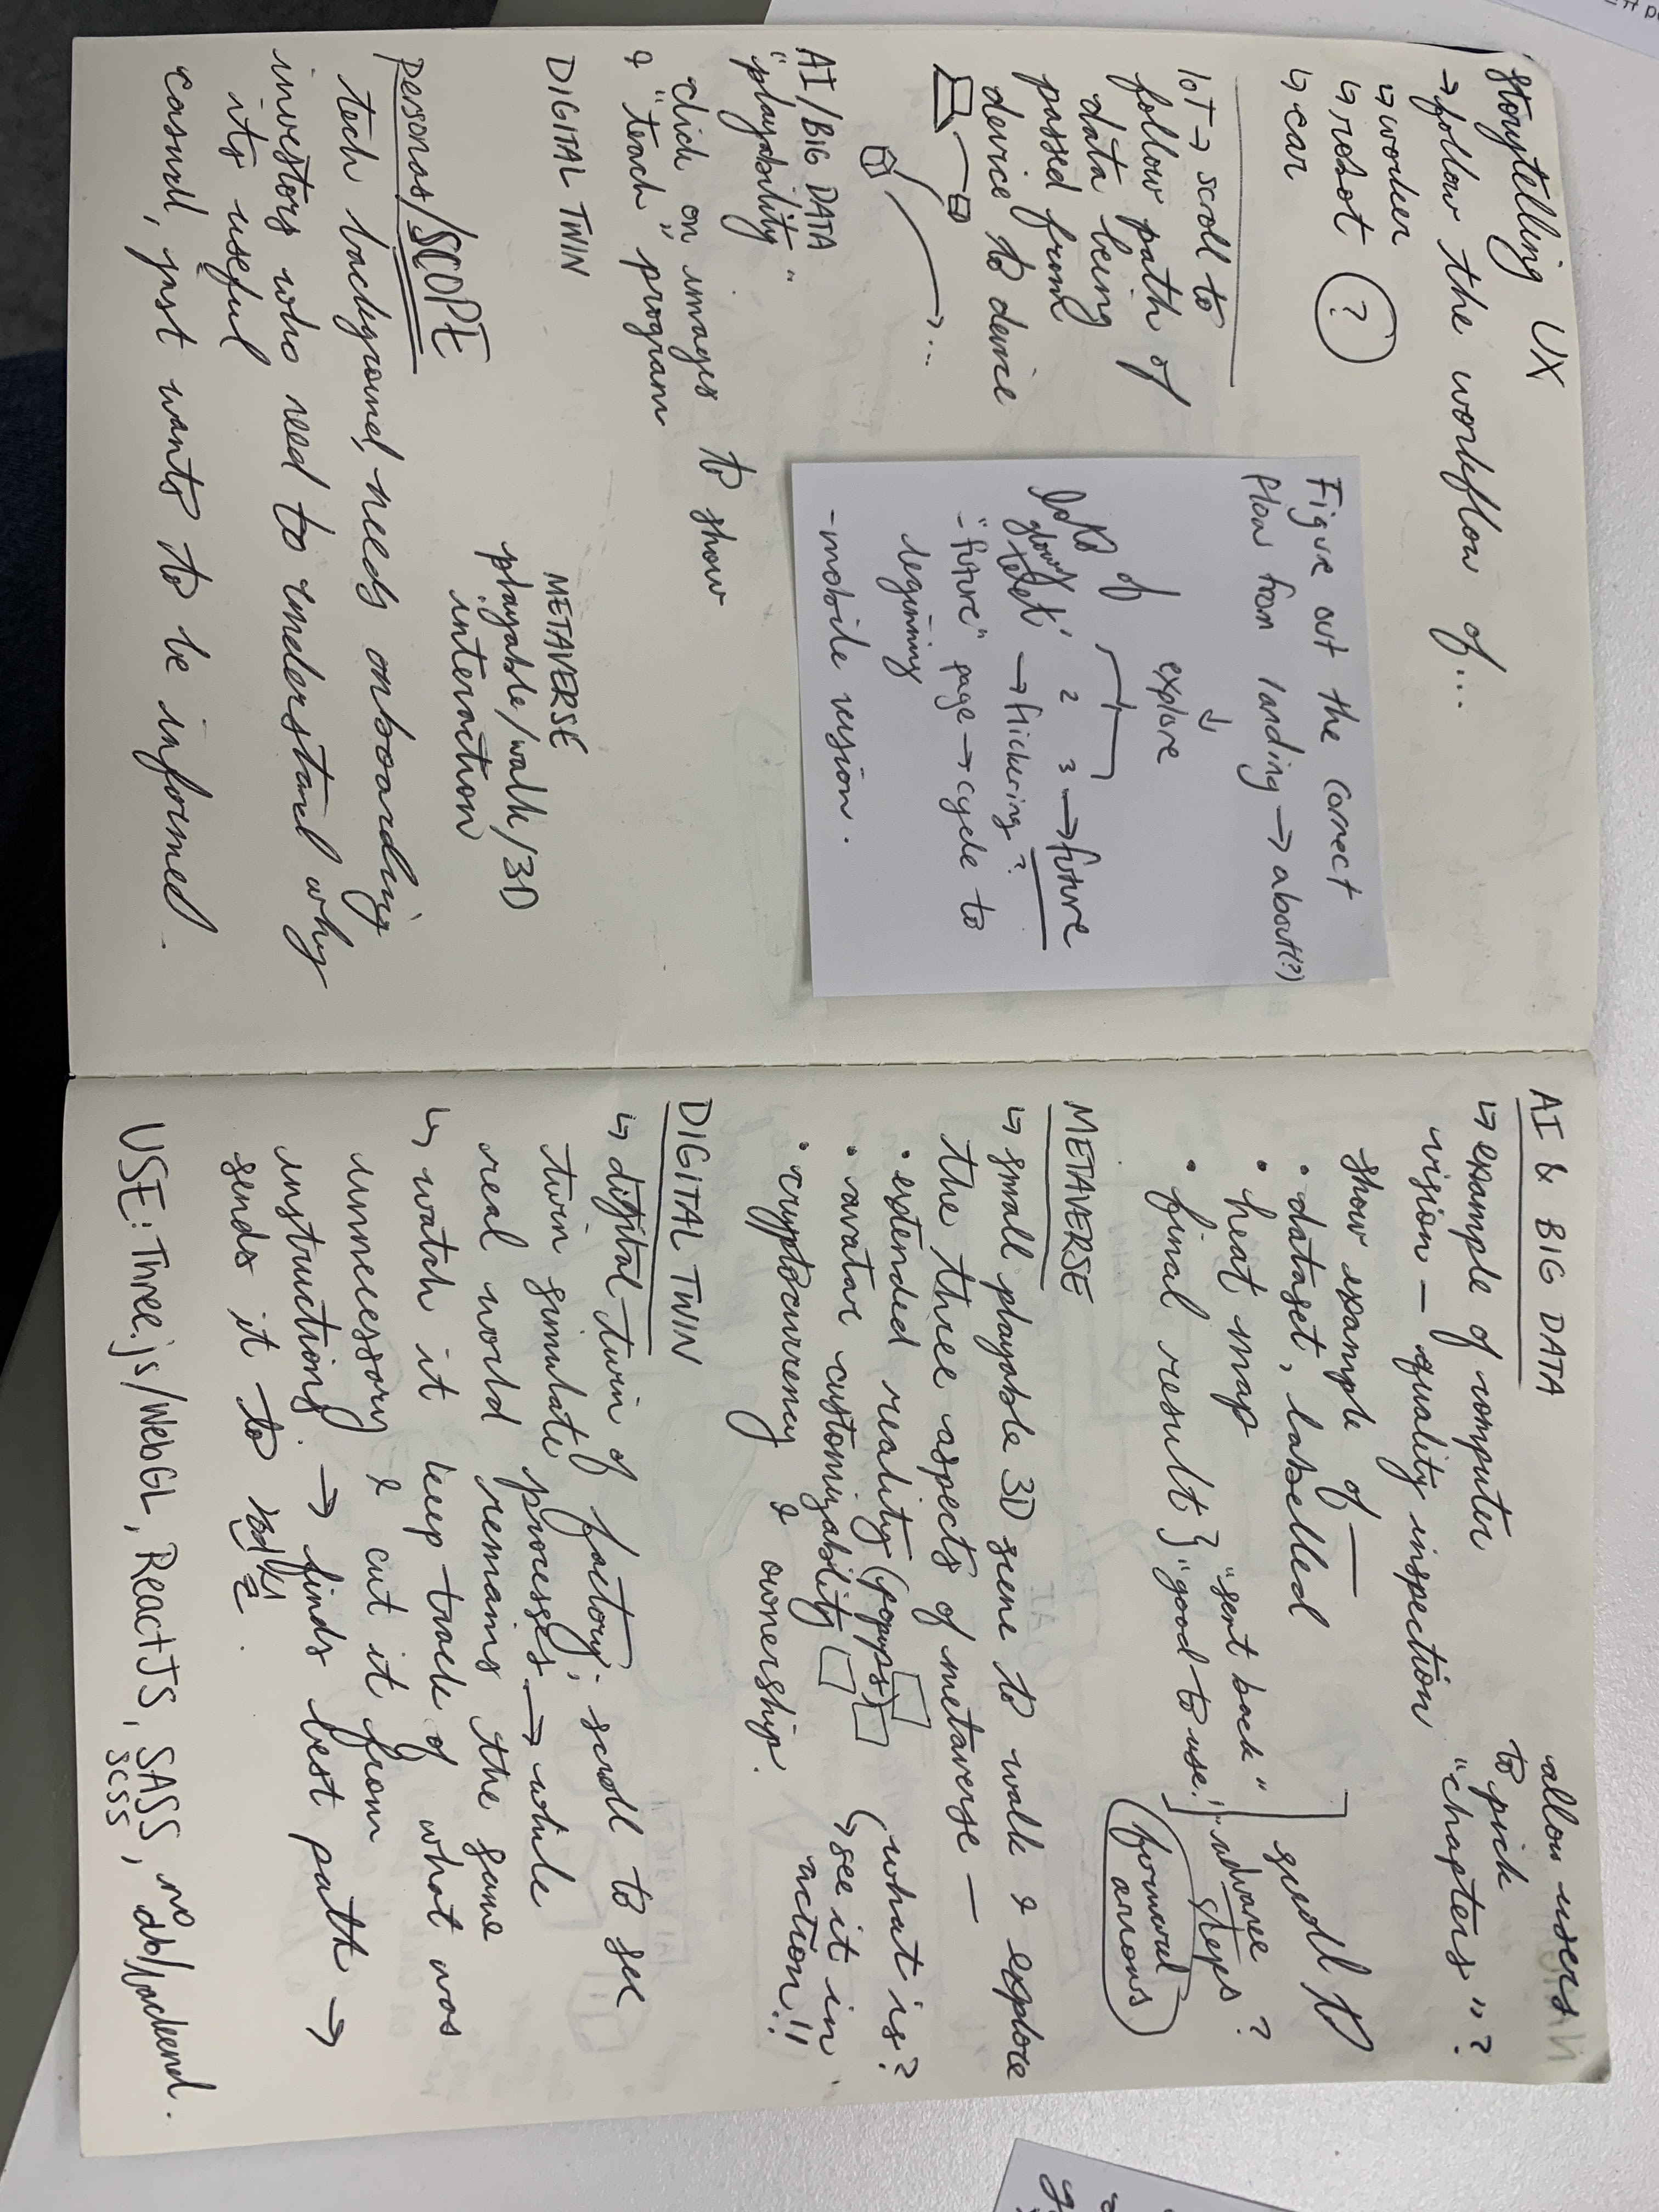 Storytelling UX
→ follow the workflow of...
↳ worker
↳ robot ?
↳ car
IoT → scroll to
follow path of
data being
passed from
device to device
...
AI/BIG DATA
"playability"
click on images to show
& "teach" program
DIGITAL TWIN
METAVERSE
playable/walk/3D
interaction
Personas/SCOPE
tech background, needs onboarding
investors who need to understand why
its useful
casual, just wants to be informed.
Figure out the correct
flow from landing → about(?)
↓
explore
of
glowy text 1 2 3 → future
→ flickering?
- "future" page → cycle to
beginning
- mobile version.
AI & BIG DATA
↳ example of computer
vision — quality inspection
show example of —
• dataset, labelled
• heat map
• final result } "sent back"
"good to use!"
allow users
to pick
"chapters"?
scroll to
advance
steps?
forward
arrows
METAVERSE
↳ small playable 3D scene to walk & explore
the three aspects of metaverse —
• extended reality (popups)
• avatar customizability
• cryptocurrency & ownership.
what is?
↳ see it in
action!!
DIGITAL TWIN
↳ digital twin of factory; scroll to see
twin simulate processes → while
real world remains the same
↳ watch it keep track of what was
unnecessary & cut it from
instructions → finds best path →
sends it to
USE: Three.js/WebGL, ReactJS, SASS, no db/backend.
SCSS